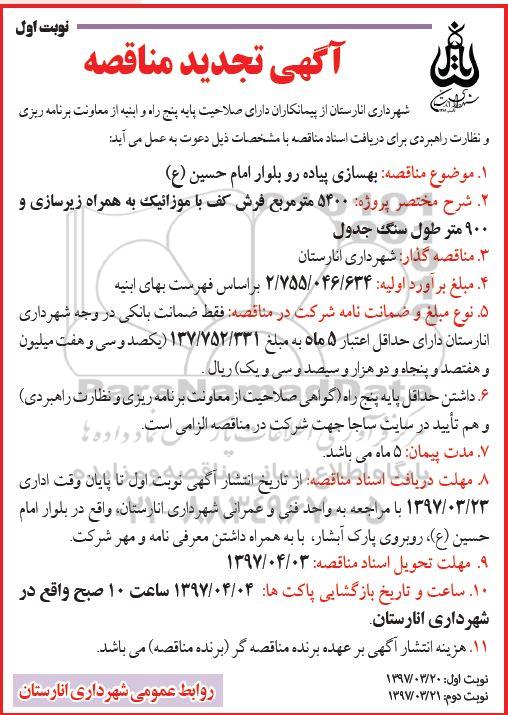 نوبت اول
آگهی تجدید مناقصه
شهرداری انارستان از پیمانکاران دارای صلاحیت پایه پنج راه و ابنیه از معاونت برنامه ریزی
و نظارت راهبردی برای دریافت اسناد مناقصه با مشخصات ذیل دعوت به عمل می آید:
۱. موضوع مناقصه: بهسازی پیاده رو بلوار امام حسین (ع)
۲. شرح مختصر پروژه: ۵۴۰۰ مترمربع فرش کف با موزائیک به همراه زیرسازی و
۹۰۰ متر طول سنگ جدول
۳. مناقصه گذار: شهرداری انارستان
۴. مبلغ برآورد اولیه: ۲/۷۵۵/۰۴۶/۶۳۴ براساس فهرست بهای ابنیه
۵. نوع مبلغ و ضمانت نامه شرکت در مناقصه: فقط ضمانت بانکی در وجه شهرداری
انارستان دارای حداقل اعتبار ۵ ماه به مبلغ ۱۳۷/۷۵۲/۳۳۱ (یکصد و سی و هفت میلیون
و هفتصد و پنجاه و دو هزار و سیصد و سی و یک) ریال .
۶. داشتن حداقل پایه پنج راه (گواهی صلاحیت از معاونت برنامه ریزی و نظارت راهبردی)
و هم تأیید در سایت ساجا جهت شرکت در مناقصه الزامی است.
۷. مدت پیمان: ۵ ماه می باشد.
۸. مهلت دریافت اسناد مناقصه: از تاریخ انتشار آگهی نوبت اول تا پایان وقت اداری
۱۳۹۷/۰۳/۲۳ با مراجعه به واحد فنی و عمرانی شهرداری انارستان، واقع در بلوار امام
حسین (ع)، روبروی پارک آبشار، با به همراه داشتن معرفی نامه و مهر شرکت.
۹. مهلت تحویل اسناد مناقصه: ۱۳۹۷/۰۴/۰۳
۱۰. ساعت و تاریخ بازگشایی پاکت ها: ۱۳۹۷/۰۴/۰۴ ساعت ۱۰ صبح واقع در
شهرداری انارستان.
۱۱. هزینه انتشار آگهی بر عهده برنده مناقصه گر (برنده مناقصه) می باشد.
نوبت اول: ۱۳۹۷/۰۳/۲۰
نوبت دوم: ۱۳۹۷/۰۳/۲۱
روابط عمومی شهرداری انارستان
ParsNamadData
پایگاه اطلاع رسانی مناقصه و مزایده
۰۲۱-۸۸۳۴۹۶۷۰-۵